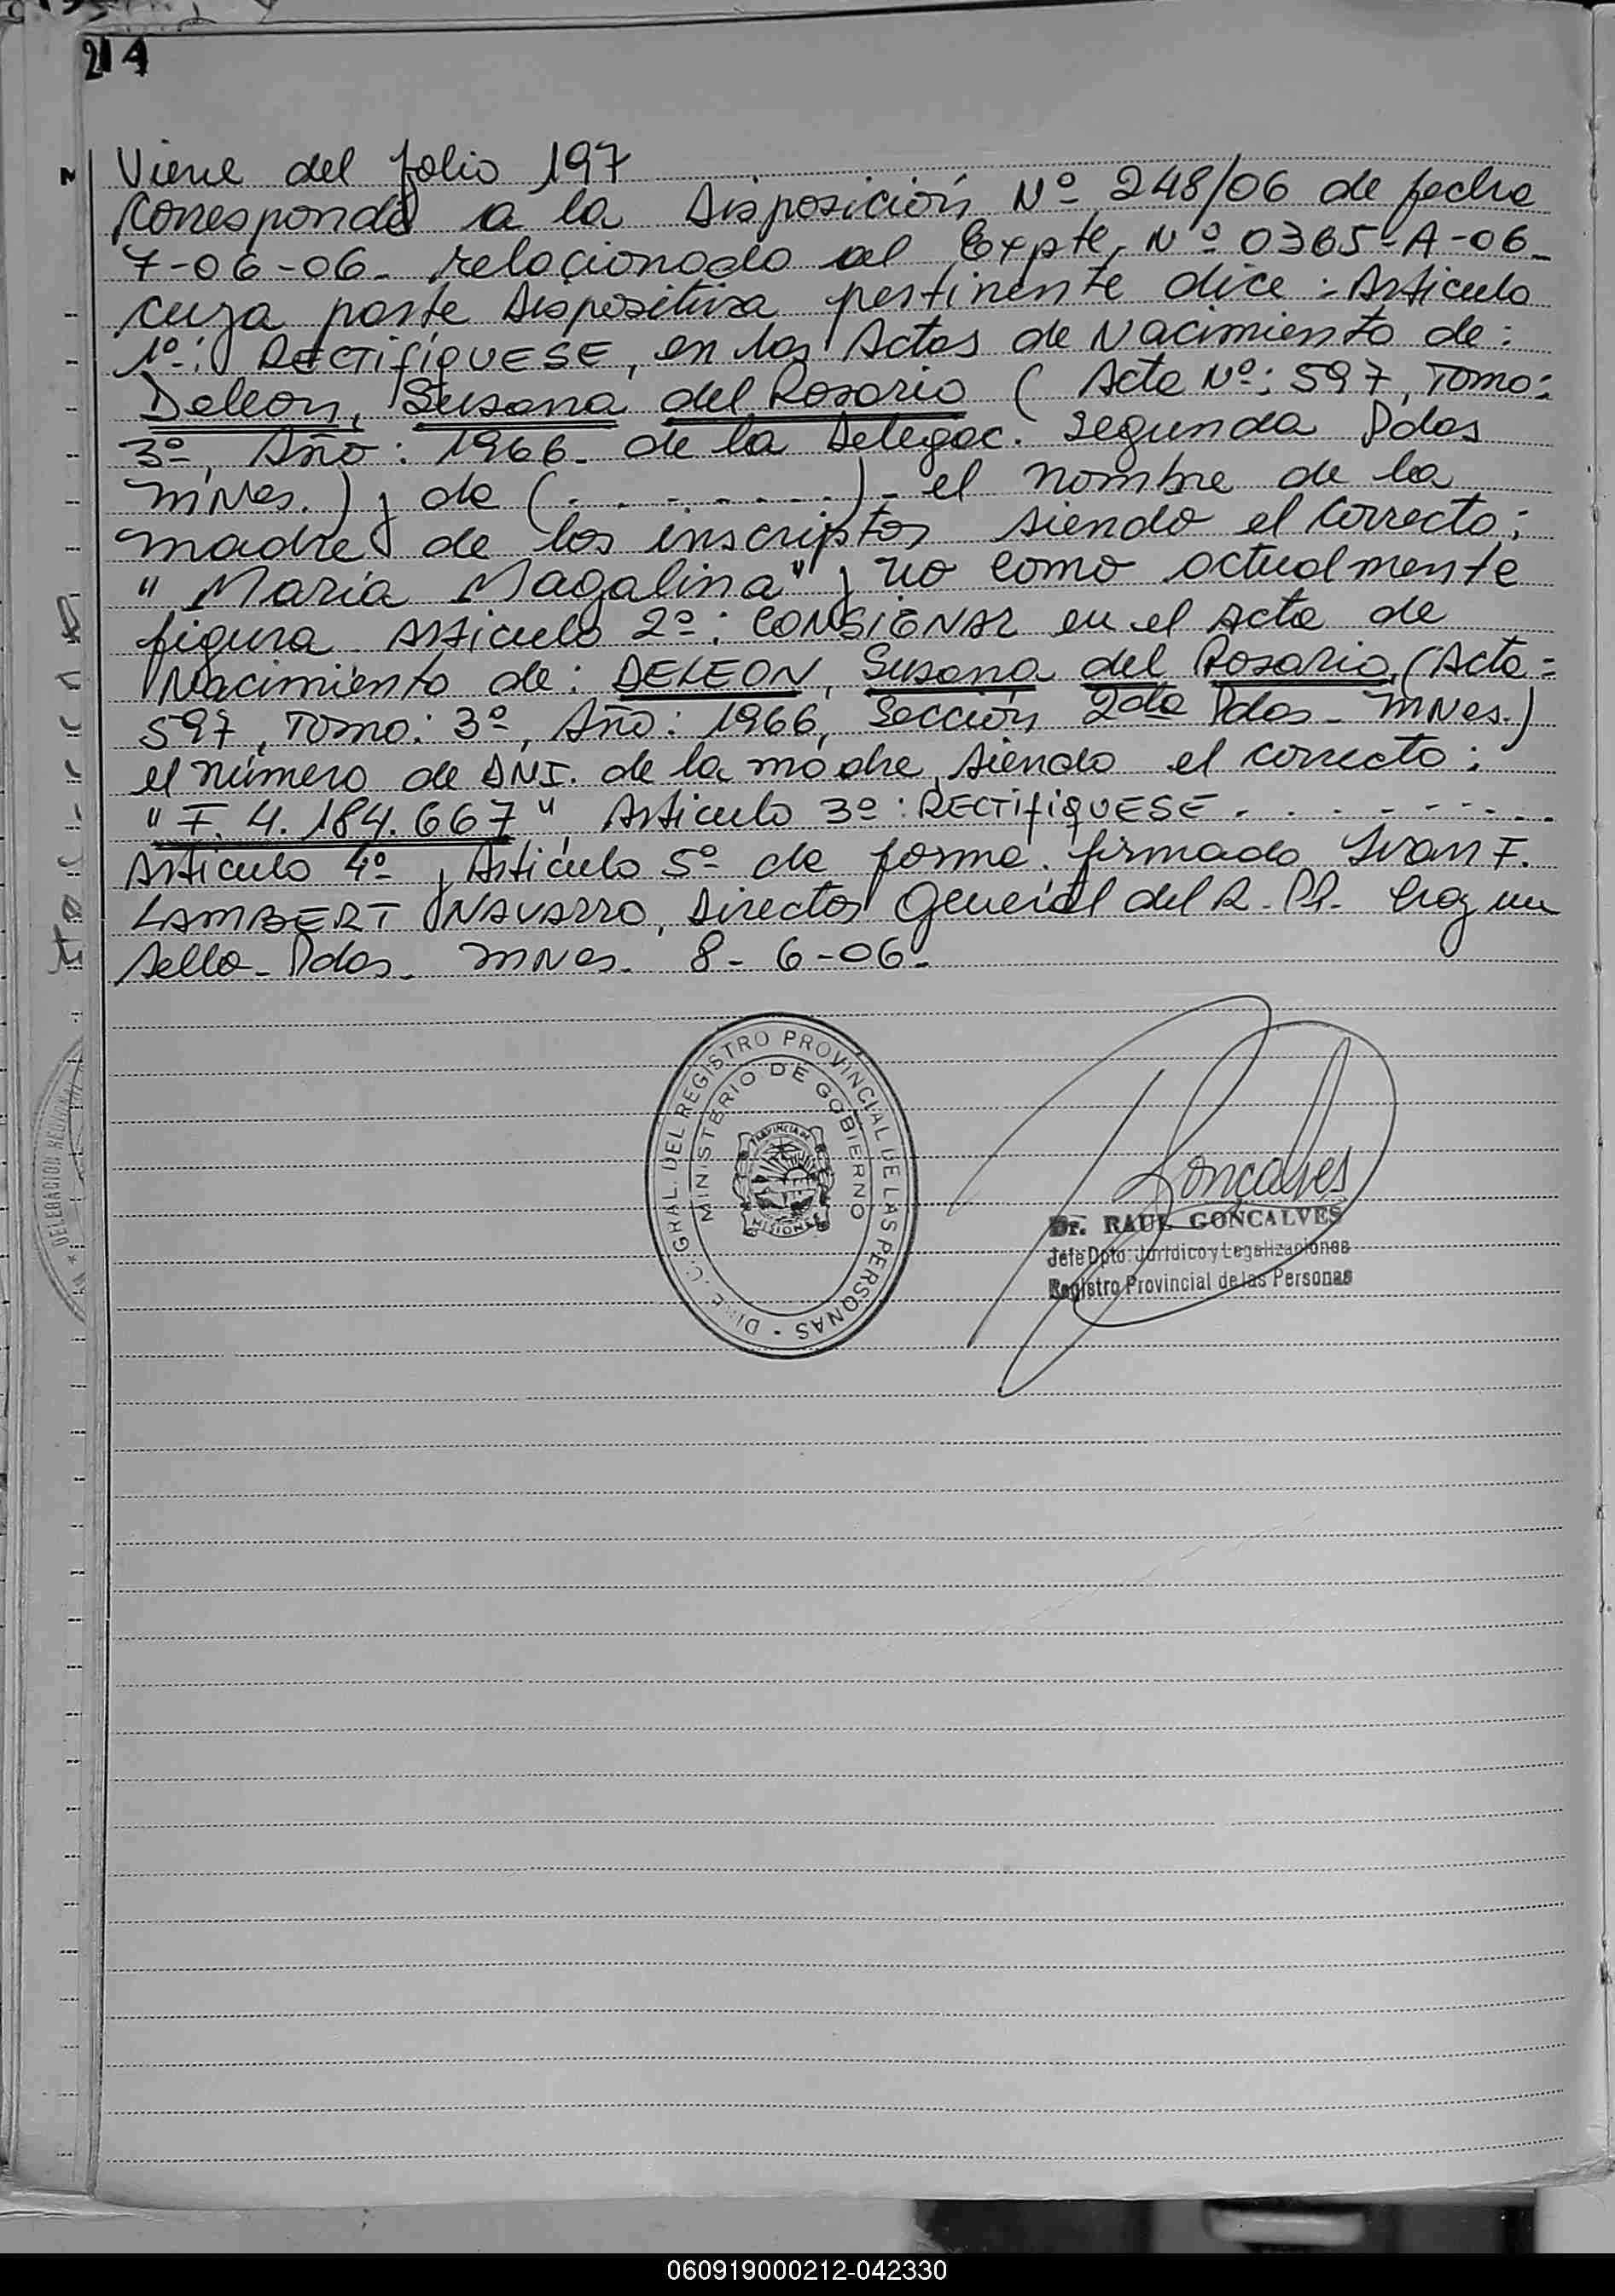 214
Viene del folio 197
Corresponde a la Disposición Nº 248/06 de fecha
7-06-06- relacionado al Expte. Nº 0365-A-06-
cuya parte Dispositiva pertinente dice: Artículo
1º: RECTIFÍQUESE, en las Actas de Nacimiento de:
Deleon, Susana del Rosario (Acta Nº: 597, Tomo:
3º, Año: 1966- de la Delegac. Segunda Pdas
Mnes.) y de (.........)- el nombre de la
madre de los inscriptos siendo el correcto:
"María Magalina" y no como actualmente
figura Artículo 2º: CONSIGNAR en el Acta de
Nacimiento de: DELEON, Susana del Rosario, (Acta=
597, Tomo: 3º, Año: 1966, Sección 2da Pdas- Mnes.)
el número de DNI. de la madre, siendo el correcto:
"F. 4.184.667", Artículo 3º: RECTIFÍQUESE.........
Artículo 4º y Artículo 5º de forma. firmado Ivan F.
LAMBERT NAVARRO, Director General del R. PP. hay un
sello- Pdas. Mnes. 8-6-06-
DIREC. GRAL. DEL REGISTRO PROVINCIAL DE LAS PERSONAS -
MINISTERIO DE GOBIERNO
PROVINCIA DE
MISIONES
Goncalves
Dr. RAUL GONCALVES
Jefe Dpto. Jurídico y Legalizaciones
Registro Provincial de las Personas
DELEGACION REGIONAL
060919000212-042330